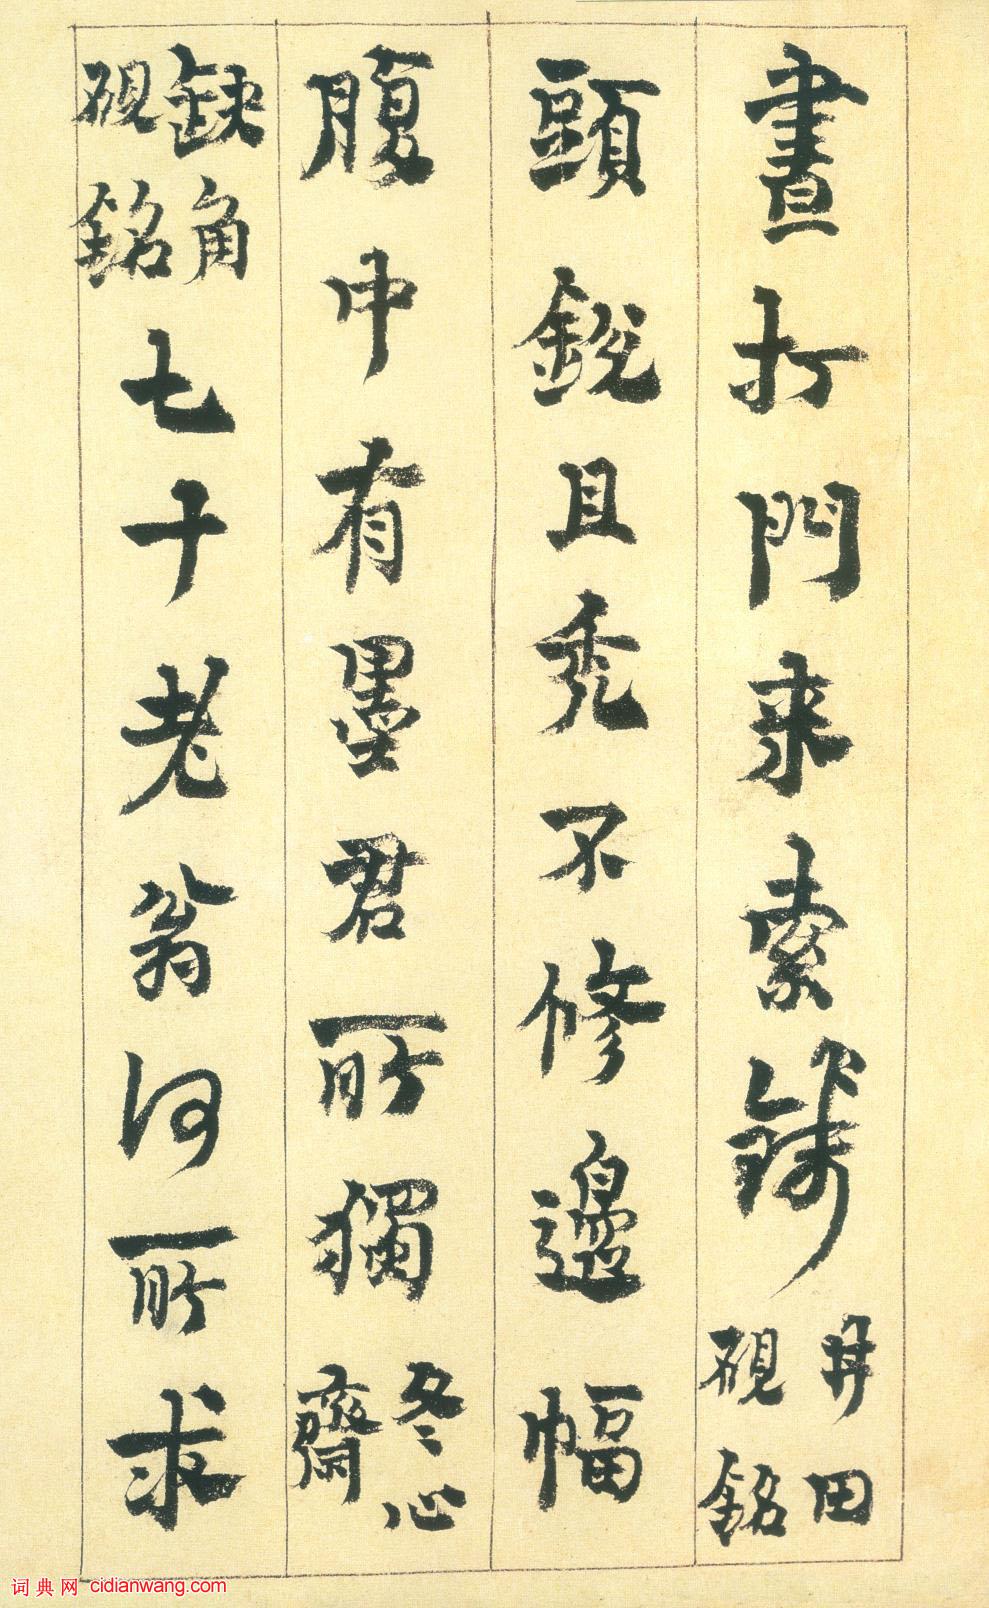 晝打門來索錢井田硯銘
頭銳且禿不修邊幅
腹中有墨君所獨冬心齋
硯銘缺角硯銘七十老翁何所求
词典网 cidianwang.com